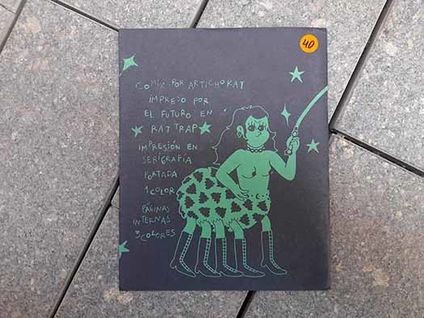 40
COMIC POR ARTICHOKAT
IMPRESO POR
EL FUTURO EN
RAT TRAP
IMPRESIÓN EN
SERIGRAFIA
PORTADA
1 COLOR
PÁGINAS
INTERNAS
3 COLORES